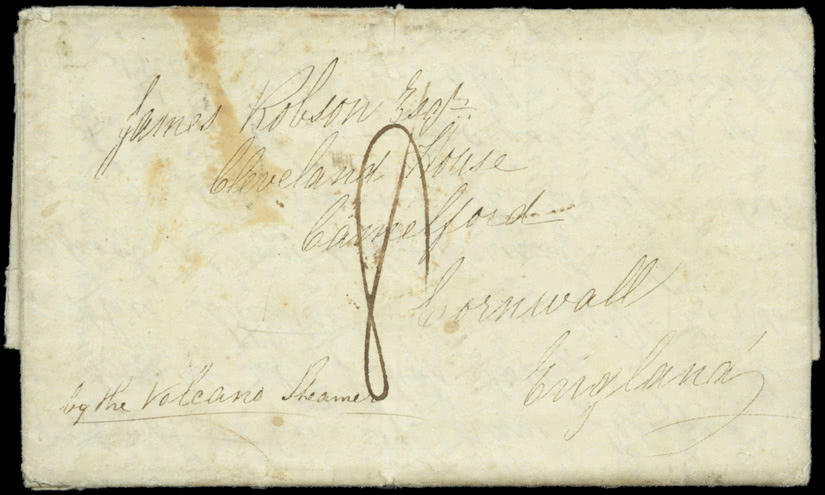 James Robson Esqr.
Cleveland House
Camelford
Cornwall
England
by the Volcano Steamer
8